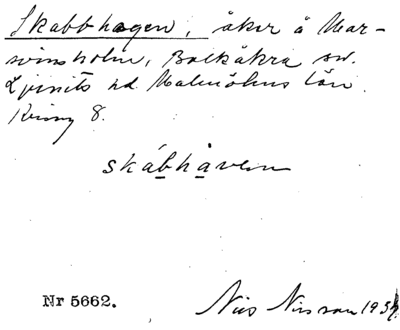 Skabbhagen, åker å Mar-
vinsholm, Balkåkra sn.
Ljunits hd. Malmöhus län.
skábhàven
Nr 5662.
Nils Nilsson 193